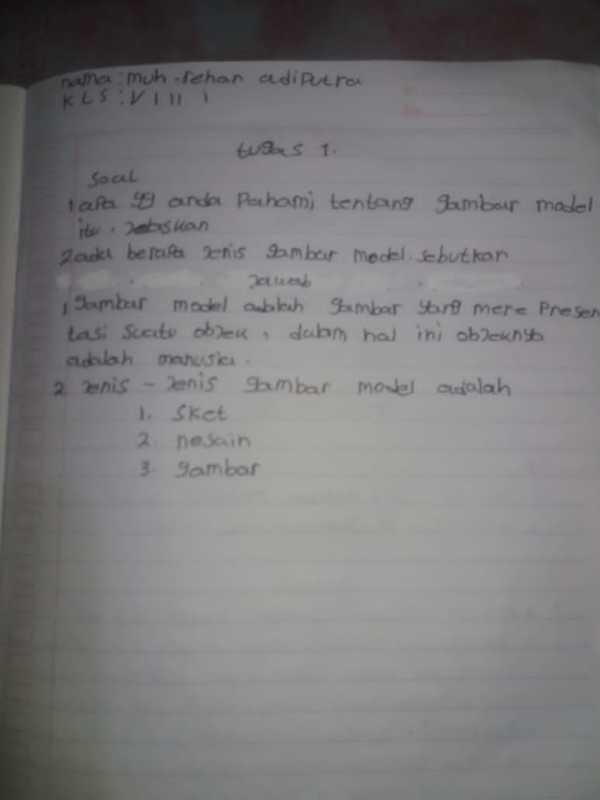 nama : muh. rehan adiputra
KLS : VIII 1
tugas 1.
Soal
1 apa yg anda Pahami tentang gambar model
itu. Jelaskan
2 ada berapa Jenis gambar model. sebutkan
Jawab
1, gambar model adalah gambar yang mere Presen
tasi Suatu objek, dalam hal ini objeknya
adalah manusia.
2 Jenis - Jenis gambar model adalah
1. Sket
2. nesain
3. gambar